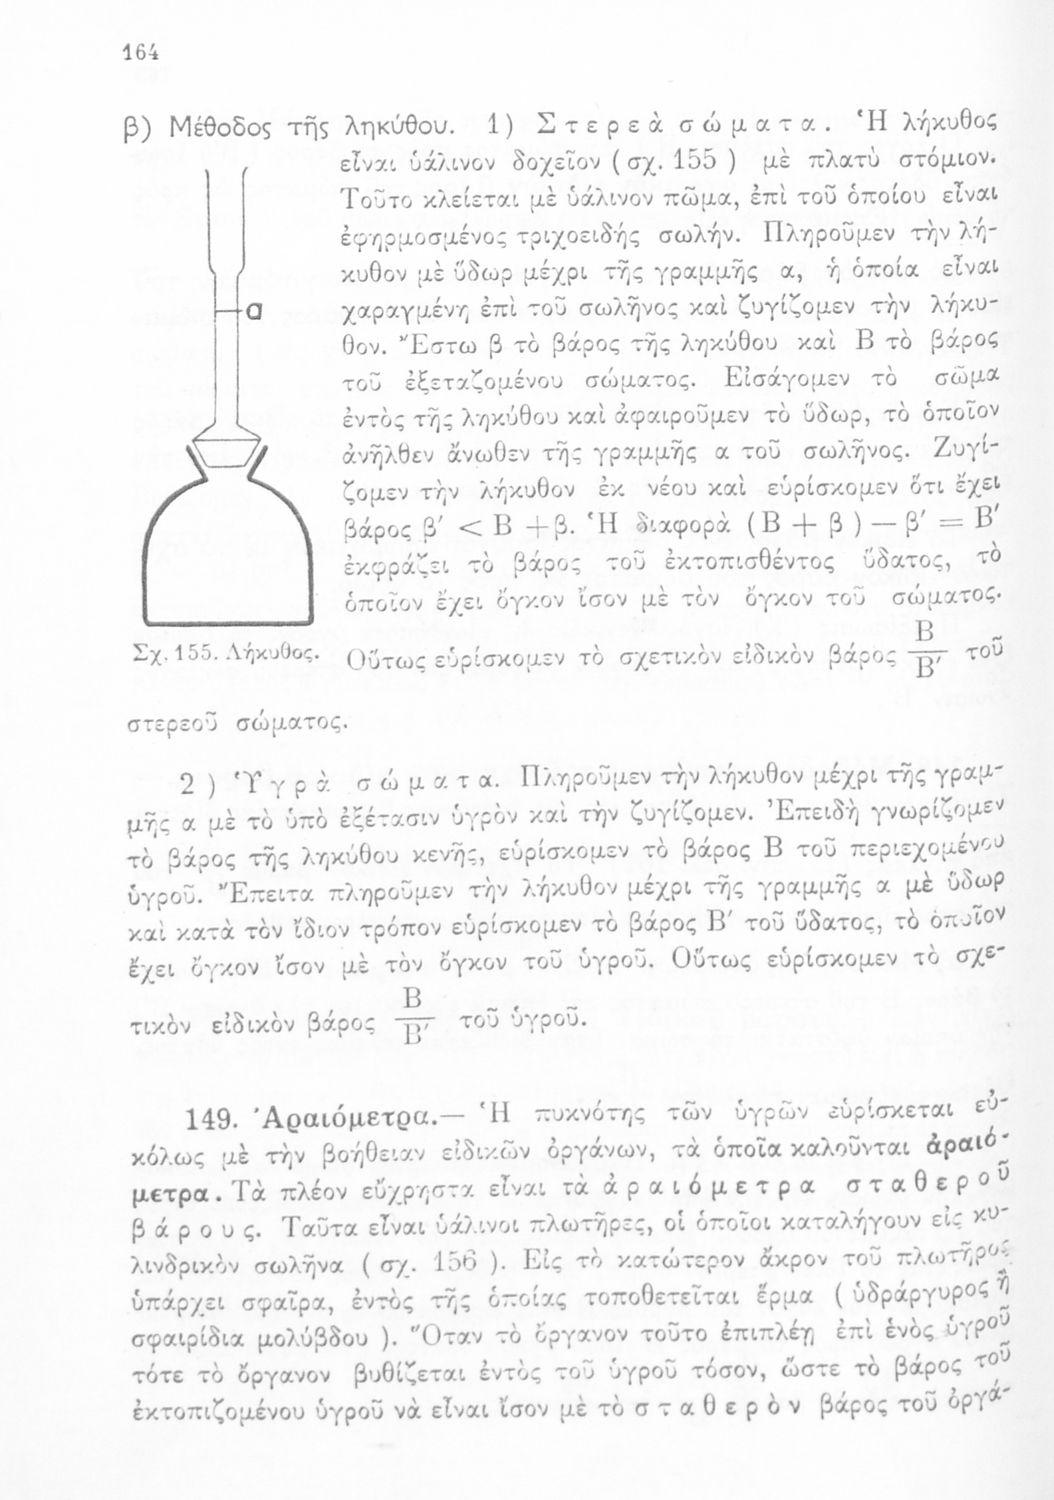 164
β) Μέθοδος τῆς ληκύθου. 1) Στερεὰ σώματα. Ἡ λήκυθος
εἶναι ὑάλινον δοχεῖον (σχ. 155) μὲ πλατὺ στόμιον.
Τοῦτο κλείεται μὲ ὑάλινον πῶμα, ἐπὶ τοῦ ὁποίου εἶναι
ἐφηρμοσμένος τριχοειδής σωλήν. Πληροῦμεν τὴν λή-
κυθον μὲ ὕδωρ μέχρι τῆς γραμμῆς α, ἡ ὁποία εἶναι
χαραγμένη ἐπὶ τοῦ σωλῆνος καὶ ζυγίζομεν τὴν λήκυ-
θον. Ἔστω β τὸ βάρος τῆς ληκύθου καὶ Β τὸ βάρος
τοῦ ἐξεταζομένου σώματος. Εἰσάγομεν τὸ σῶμα
ἐντὸς τῆς ληκύθου καὶ ἀφαιροῦμεν τὸ ὕδωρ, τὸ ὁποῖον
ἀνῆλθεν ἄνωθεν τῆς γραμμῆς α τοῦ σωλῆνος. Ζυγί-
ζομεν τὴν λήκυθον ἐκ νέου καὶ εὑρίσκομεν ὅτι ἔχει
βάρος β′ < Β + β. Ἡ διαφορὰ (Β + β) — β′ = Β′
ἐκφράζει τὸ βάρος τοῦ ἐκτοπισθέντος ὕδατος, τὸ
ὁποῖον ἔχει ὄγκον ἴσον μὲ τὸν ὄγκον τοῦ σώματος.
Οὕτως εὑρίσκομεν τὸ σχετικὸν εἰδικὸν βάρος Β/Β′ τοῦ
α
Σχ. 155. Λήκυθος.
στερεοῦ σώματος.
2) Ὑγρὰ σώματα. Πληροῦμεν τὴν λήκυθον μέχρι τῆς γραμ-
μῆς α μὲ τὸ ὑπὸ ἐξέτασιν ὑγρὸν καὶ τὴν ζυγίζομεν. Ἐπειδὴ γνωρίζομεν
τὸ βάρος τῆς ληκύθου κενῆς, εὑρίσκομεν τὸ βάρος Β τοῦ περιεχομένου
ὑγροῦ. Ἔπειτα πληροῦμεν τὴν λήκυθον μέχρι τῆς γραμμῆς α μὲ ὕδωρ
καὶ κατὰ τὸν ἴδιον τρόπον εὑρίσκομεν τὸ βάρος Β′ τοῦ ὕδατος, τὸ ὁποῖον
ἔχει ὄγκον ἴσον μὲ τὸν ὄγκον τοῦ ὑγροῦ. Οὕτως εὑρίσκομεν τὸ σχε-
τικὸν εἰδικὸν βάρος Β/Β′ τοῦ ὑγροῦ.
149. Ἀραιόμετρα.— Ἡ πυκνότης τῶν ὑγρῶν εὑρίσκεται εὐ-
κόλως μὲ τὴν βοήθειαν εἰδικῶν ὀργάνων, τὰ ὁποῖα καλοῦνται ἀραιό-
μετρα. Τὰ πλέον εὔχρηστα εἶναι τὰ ἀραιόμετρα σταθεροῦ
βάρους. Ταῦτα εἶναι ὑάλινοι πλωτῆρες, οἱ ὁποῖοι καταλήγουν εἰς κυ-
λινδρικὸν σωλῆνα (σχ. 156). Εἰς τὸ κατώτερον ἄκρον τοῦ πλωτῆρος
ὑπάρχει σφαῖρα, ἐντὸς τῆς ὁποίας τοποθετεῖται ἕρμα (ὑδράργυρος ἢ
σφαιρίδια μολύβδου). Ὅταν τὸ ὄργανον τοῦτο ἐπιπλέῃ ἐπὶ ἑνὸς ὑγροῦ
τότε τὸ ὄργανον βυθίζεται ἐντὸς τοῦ ὑγροῦ τόσον, ὥστε τὸ βάρος τοῦ
ἐκτοπιζομένου ὑγροῦ νὰ εἶναι ἴσον μὲ τὸ σταθερὸν βάρος τοῦ ὀργά-